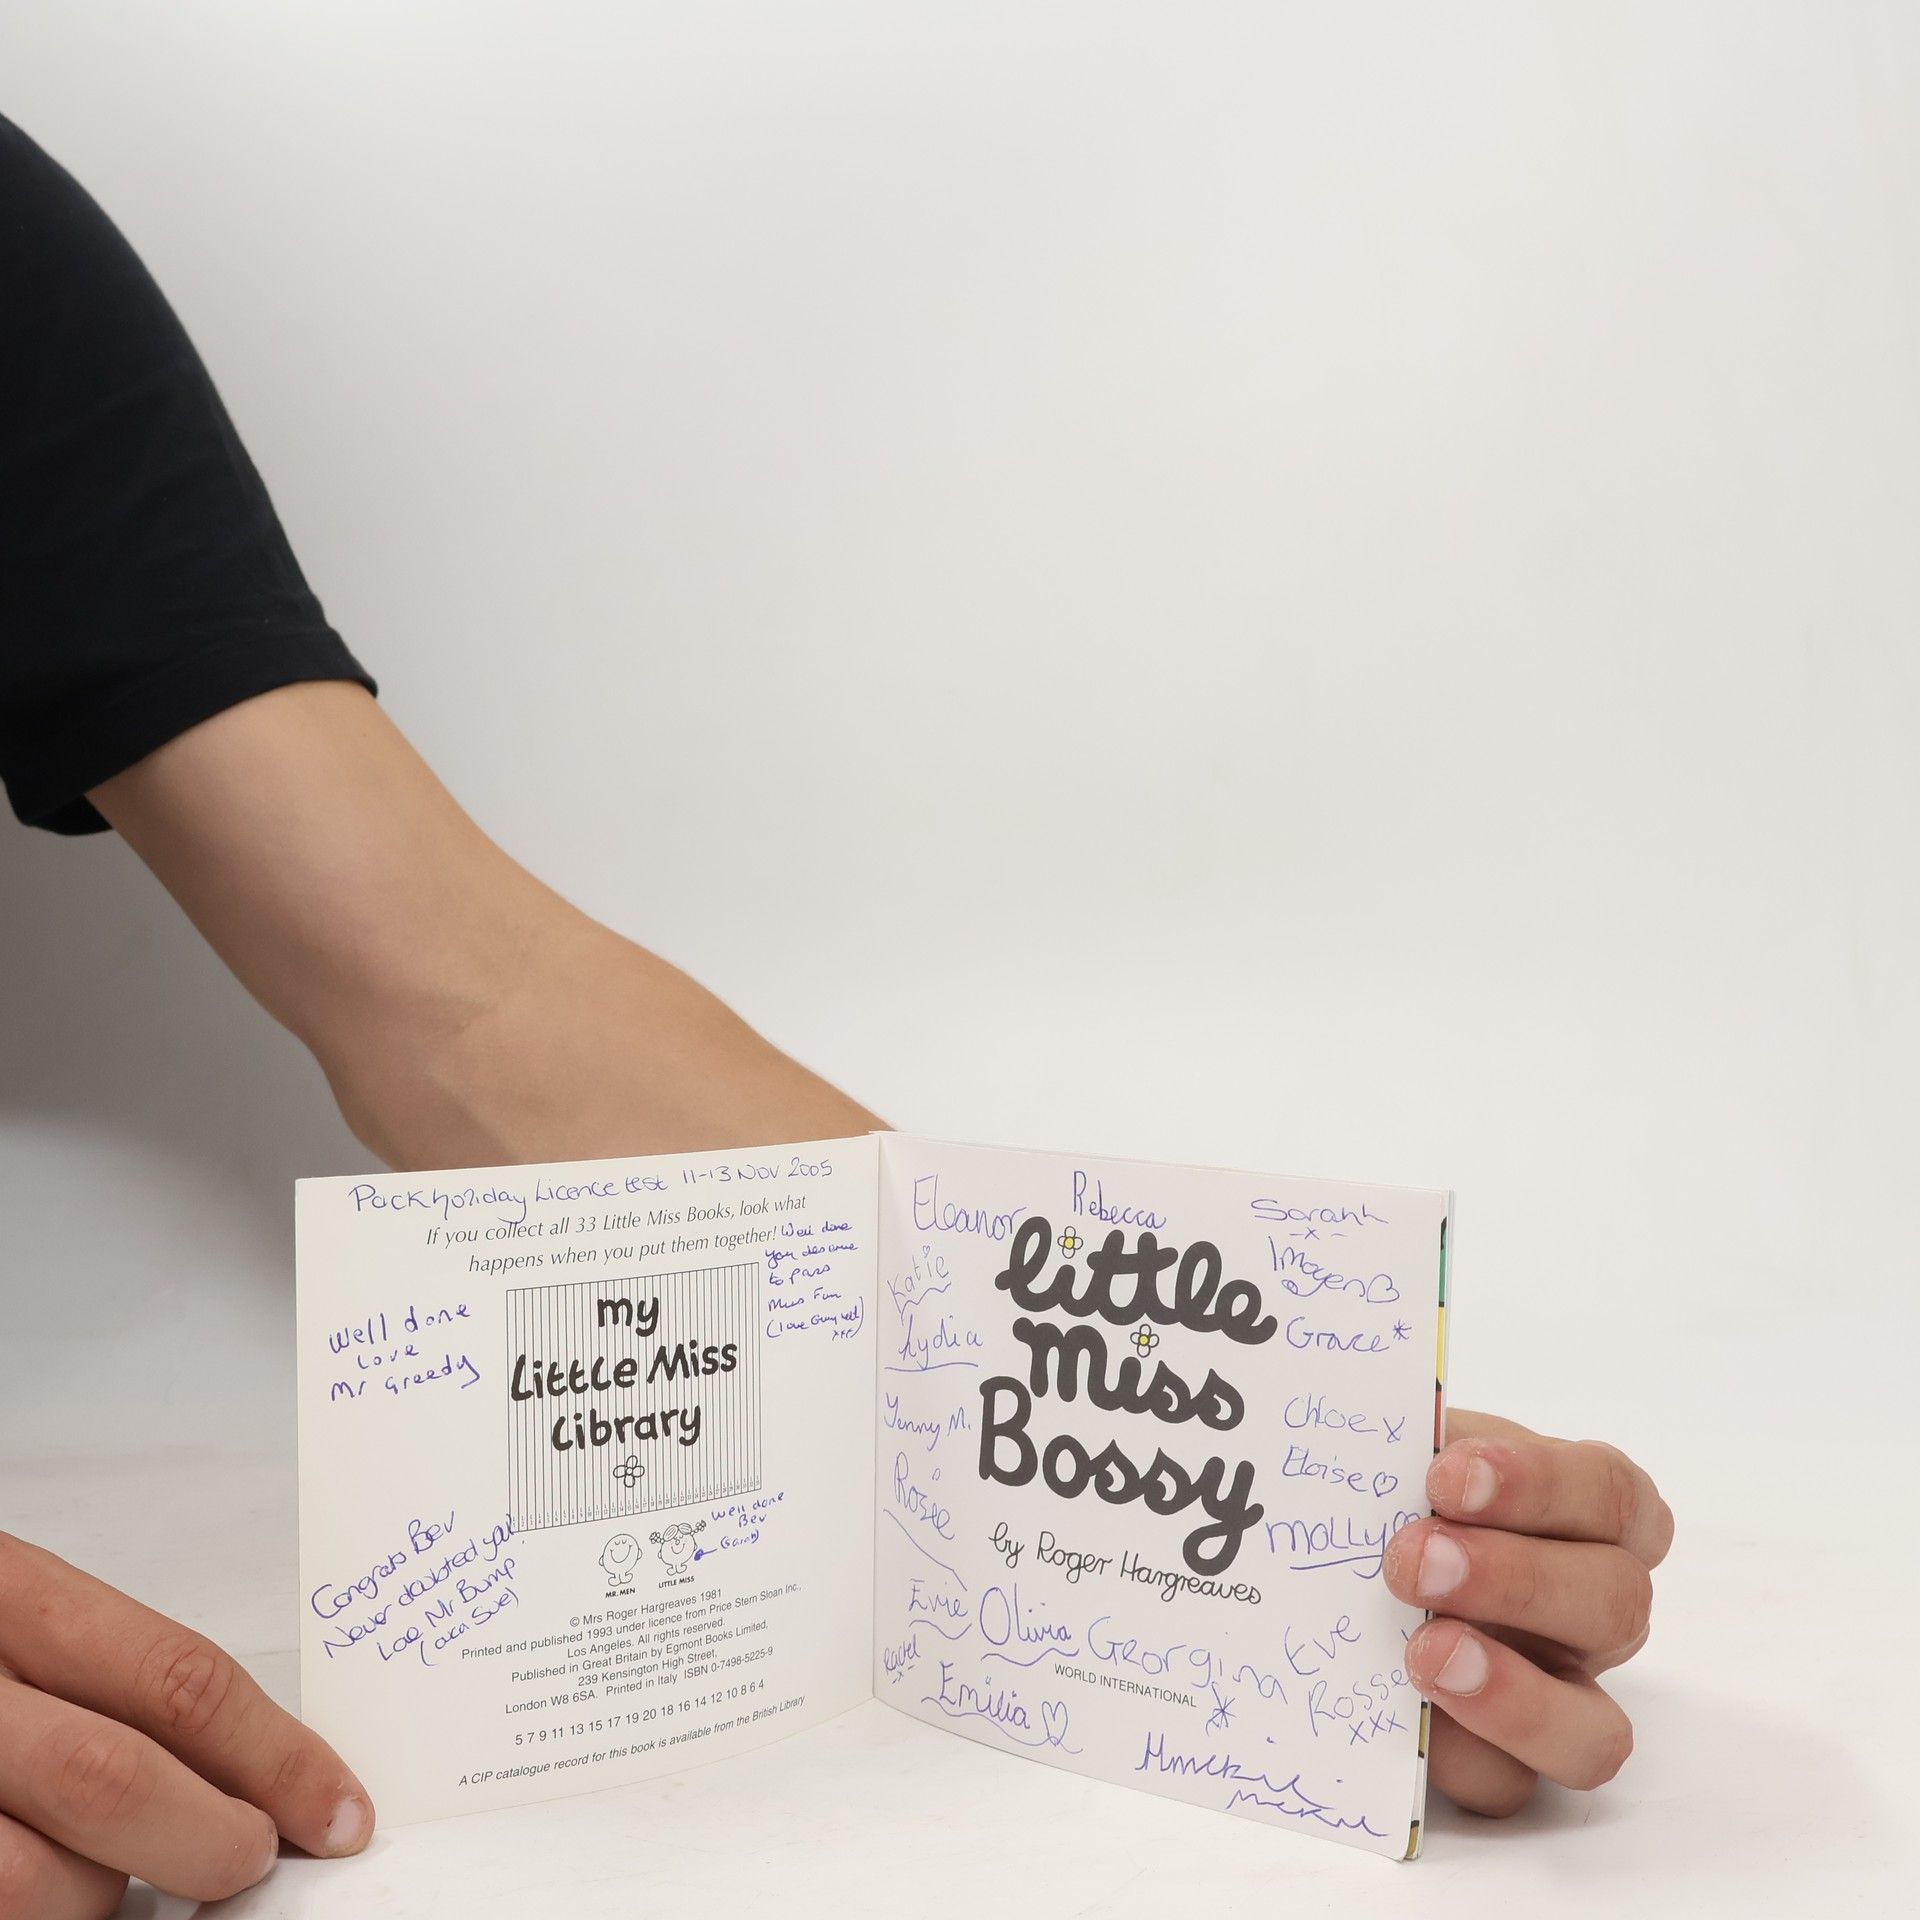 Packholiday Licence test 11-13 Nov 2005
If you collect all 33 Little Miss Books, look what
happens when you put them together!
Well done
you deserve
to pass
Miss Fun
my
Little Miss
Library
Well done
Love
Mr Greedy
Congrats Bev
Never doubted you!
Love Mr Bump
(aka Sue)
Well done
Bev
MR. MEN
LITTLE MISS
© Mrs Roger Hargreaves 1981
Printed and published 1993 under licence from Price Stern Sloan Inc.,
Los Angeles. All rights reserved.
Published in Great Britain by Egmont Books Limited,
239 Kensington High Street,
London W8 6SA. Printed in Italy ISBN 0-7498-5225-9
5 7 9 11 13 15 17 19 20 18 16 14 12 10 8 6 4
A CIP catalogue record for this book is available from the British Library
Eleanor
Rebecca
Sarah
Katie
Imogen
Lydia
Grace*
little
miss
Bossy
by Roger Hargreaves
Jenny M.
Chloe x
Rosie
Eloise
Molly
Evie
Olivia
Georgina
Eve
Rachel
Emilia
WORLD INTERNATIONAL
xxx